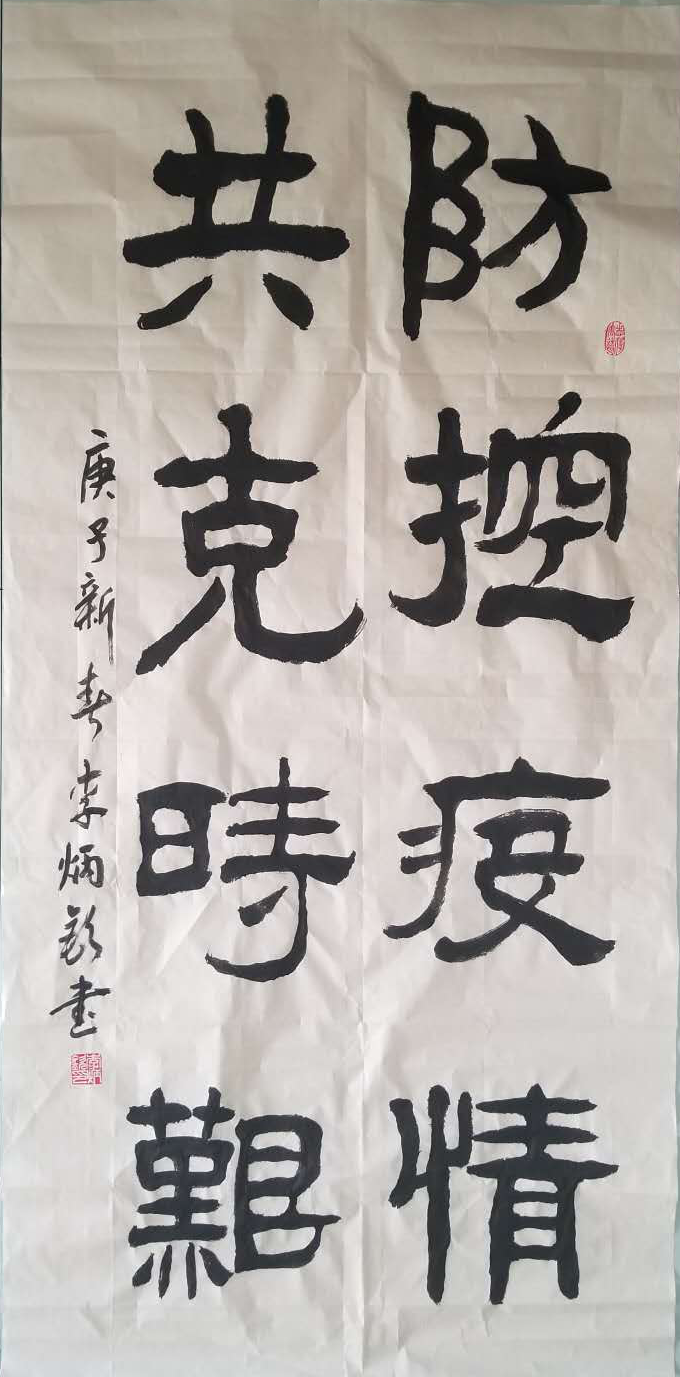 防控疫情
共克時艱
庚子新春李炳毅書